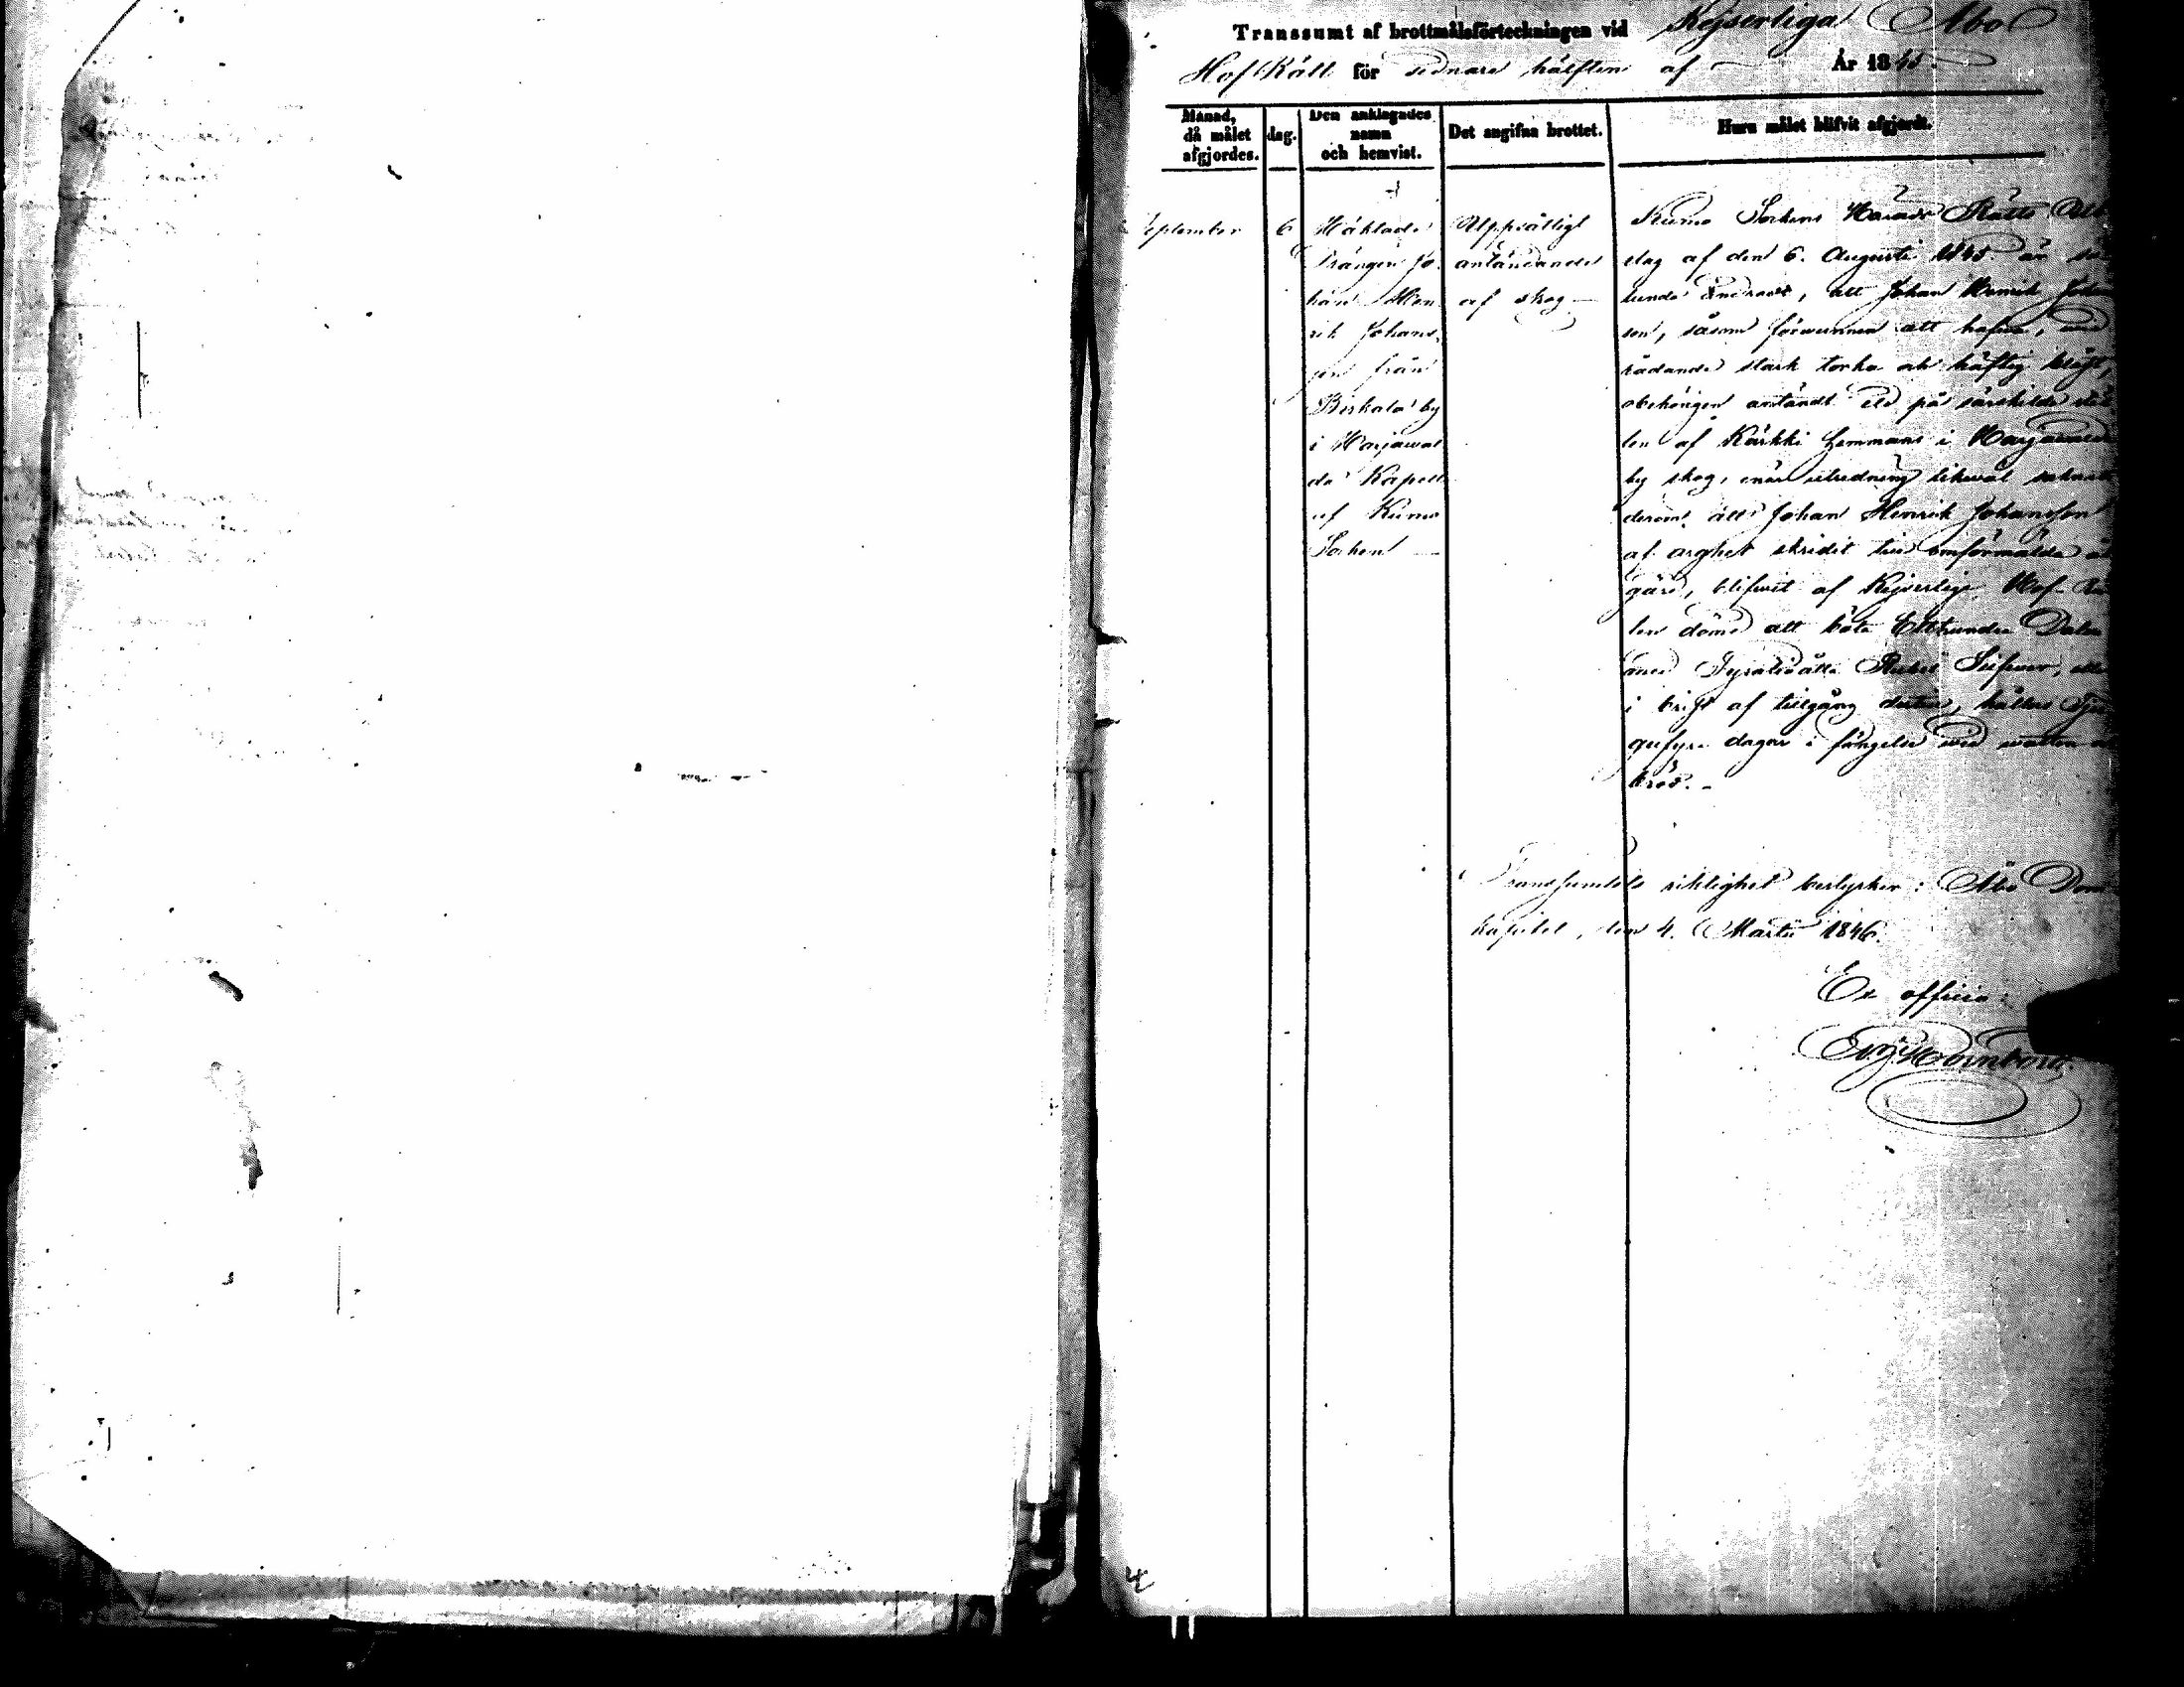 Transsumt af brottmålsförteckningen vid Kejserliga Åbo
Hof Rätt för sednare hälften af År 1845
Månad, då målet afgjordes.
dag.
Den anklagades namn och hemvist.
Det angifna brottet.
Huru målet blifvit afgjordt.
September
6
Häktade
Drängen Jo-
han Hen-
rik Johans-
son från
Birkala by
i Harjawal-
da Kapell
af Kumo
Sochen
Uppsåtligt
antändande
af skog
Kumo Sochens Härads Rätts Ut-
slag af den 6. Augusti 1845 är så-
lunda ändradt, att Johan Henrik Johans-
son, såsom förwunnen att hafwa, wid
rådande stark torka och häftig blåst,
obehörigen antändt eld på särskilda stäl-
len af Kärkki hemmans i Harjawalda
by skog, men utredning likwäl saknats
derom, att Johan Henrik Johansson
af arghet skridit till omförmälda åt-
gärd, blifwit af Kejserliga Hof Rät-
ten dömd att böta Etthundra Daler
med Fyratioåtta Rubel Silfwer, eller
i brist af tillgång dertill, hållas Tju-
gufyra dagar i fängelse wid watten och
bröd. -
Transsumtets riktighet bestyrker: Åbo Dom-
kapitel, den 4. Martii 1846.
Ex officio:
4